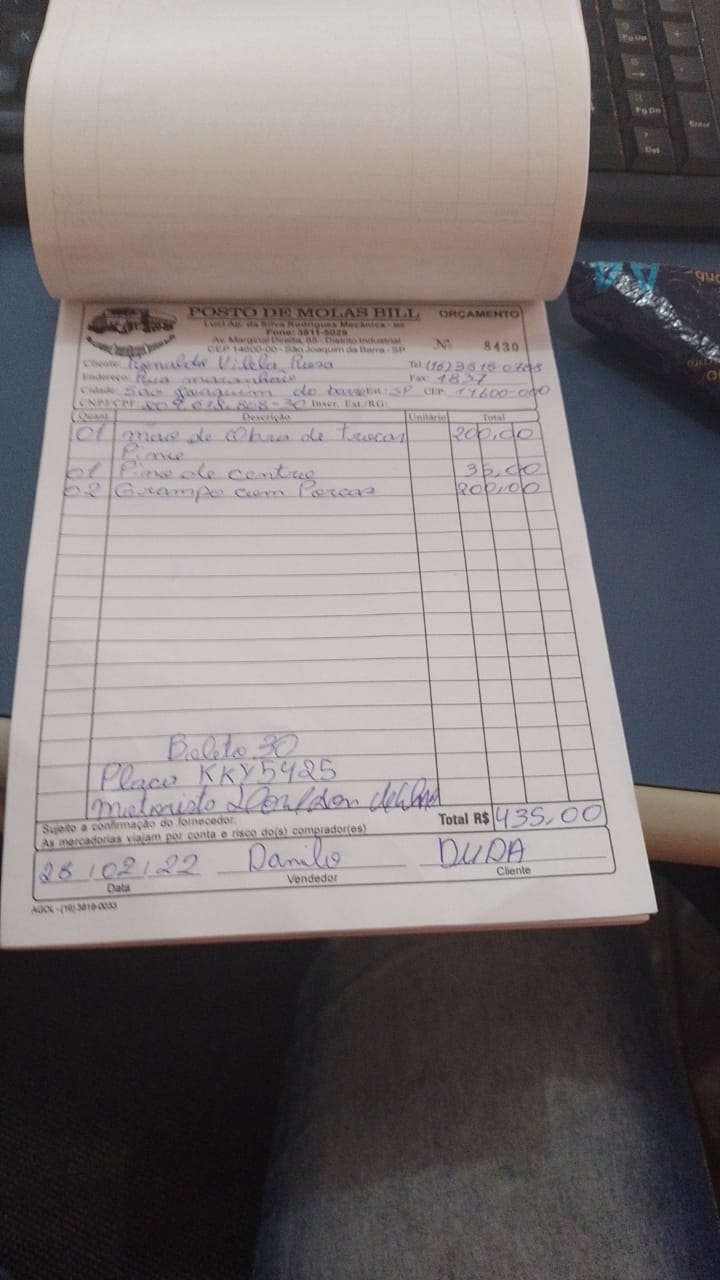 POSTO DE MOLAS BILL ORÇAMENTO
Luci Ap. da Silva Rodrigues Mecânica - me
Fone: 3811-5029
Av. Marginal Direita, 85 - Distrito Industrial
CEP 14600-00 - São Joaquim da Barra - SP
Nº 8430
Cliente: Ronaldo Vilela Rosa Tel.
Endereço: Rua maranhão Fax: 1837
Cidade: São Joaquim da barra Est.: SP CEP: 14600-000
CNPJ/CPF: Inscr. Est./RG:
Quant. Descrição Unitário Total
01 mão de Obra de trocar 200,00
Pino
01 Pino de centro 35,00
02 Grampo com Porcas 200,00
Boleto 30
Placa KKY5425
motorista
Sujeito a confirmação do fornecedor.
As mercadorias viajam por conta e risco do(s) comprador(es)
Total R$ 435,00
28/02/22 Danilo DUDA
Data Vendedor Cliente
AGOL - (16) 3818-0033